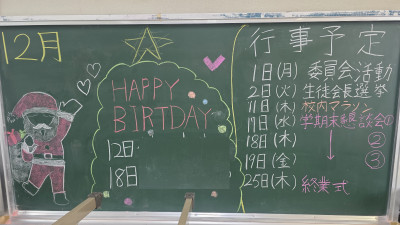 12月
HAPPY
BIRTDAY
12日
18日
行事予定
1日(月) 委員会活動
2日(火) 生徒会長選挙
11日(木) 校内マラソン
17日(水) 学期末懇談会①
18日(木) ②
19日(金) ③
25日(木) 終業式